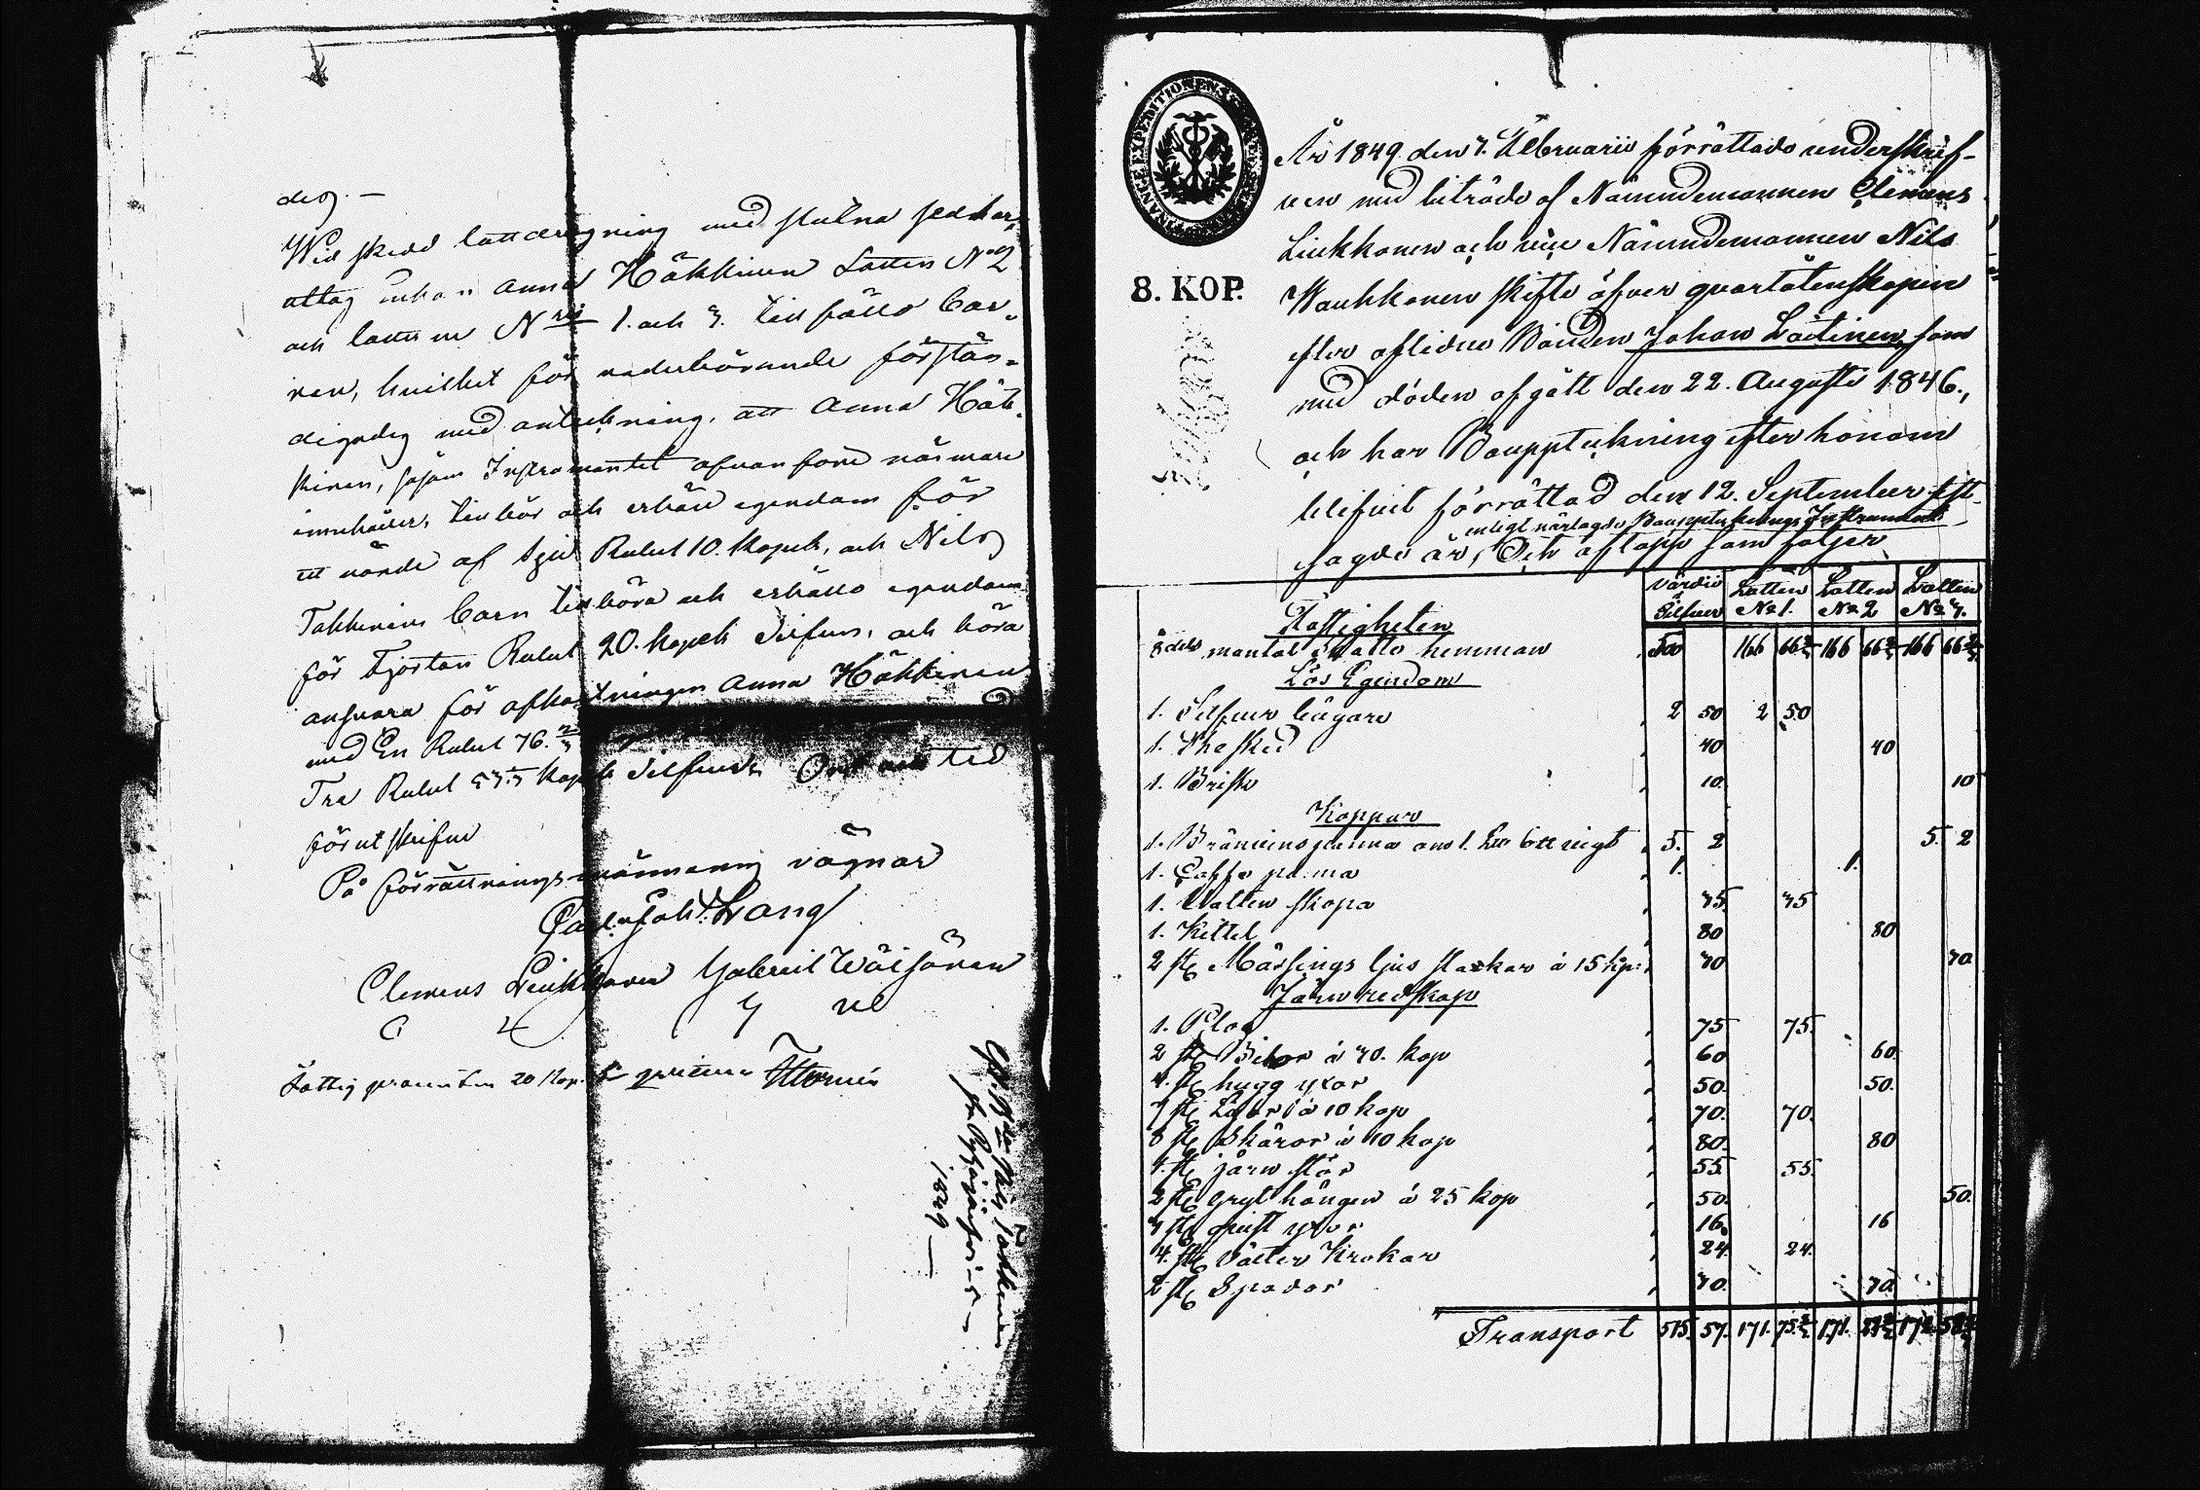 des. —
Wid skedd lottdragning med slutna sedlar,
uttog enkan Anna Häkkinen Lotten No 2
och lotterne Nris 1. och 3. till föllo Bar-
nen, hvilket för vederbörande förstän-
digades med anteckning, att Anna Häk-
kinen, såsom Instrumentet ofvanföre närmare
innehåller, tillhör och erhåll egendom för
ett värde af Sju Rubel 10. Kopek, och Nils
Takkinens Barn tillhöra och erhålla egendom
för Fjorton Rubel 20. Kopek Silfver, och böra
ansvara för afkortningen Anna Häkkinen
med En Rubel 76. 2/3
Tre Rubel 53. 1/3 Kopek Silfver. Ort och tid
förut skrifne
På förrättningsmännens vägnar
Carl Joh: Lang
Clemens Leinkkonen Gabriel Wäisänen
C L G W
Fattig procenten 20 Kop. S:r
Nils Takkinen
1849 —
FINANCE EXPEDITIONENS
8. KOP.
År 1849. den 7. Februarii förrättade underskrif-
ven med biträde af Nämndemannen Clemens
Leinkkonen och vice Nämndemannen Nils
Wauhkonen skifte öfver qvarlåtenskapen
efter aflidne Bonden Johan Laitinen, som
med döden afgått den 22. Augusti 1846.,
och har Bouppteckning efter honom
blifvit förrättad den 12. September sist-
enligt närlagde Bouppteknings Instrument
sagde år, Och aflopp som följer
Värdie Silfver Lotten No 1. Lotten No 2 Lotten No 3.
Fastigheten
8dels mantal Skatte hemman 500 166 66 2/3 166 66 2/3 166 66 2/3
Lös Egendom
1. Silfver bägare 2 50 2 50
1. Thesked 40 40
1. Briska 10. 10
Koppar
1. Bränvinspanna om 1. 5. 2 5. 2
1. Caffe panna 1. 1.
1. Vatten skopa 75 75
1. Kittel 80 80
2 st Mässings ljus stakar à 15 kop: 30 30
Järn redskap
1. Plog 75 75.
2 st Bilor à 30. kop 60 60.
4. st hugg yxor 50. 50.
7 st Liar à 10 kop 70. 70.
8 st Skäror à 10 kop 80. 80
1. st järn stör 55. 55.
2 st gryt hängen à 25 kop 50. 50.
yxor 16. 16
4. st Krokar 24. 24.
2 st Spador 30. 30
Transport 515. 57. 171. 75. 2/3 171. 172